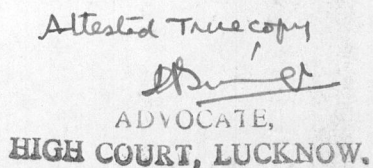 Attested True copy
ADVOCATE,
HIGH COURT, LUCKNOW.